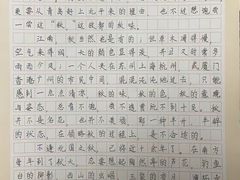 要从青岛赶上北平来的理由,也不过想饱尝
一尝这“秋”,这故都的秋味。
江南,秋当然也是有的,但草木凋得慢,
空气来得润,天的颜色显得淡,并且又时常多
雨而少风;一个人夹在苏州上海杭州,或厦门
香港广州的市民中间,混混沌沌地过去,只能
感到一点点清凉,秋的味,秋的色,秋的意境
与姿态,总看不饱,尝不透,赏玩不到十足。秋
并不是名花,也并不是美酒,那一种半开、半醉
的状态,在领略秋的过程上,是不合适的。
不逢北国之秋,已将近十余年了。在南方
每年到了秋天,总要想起陶然亭的芦花,钓鱼
台的柳影,西山的虫唱,玉泉的夜月,